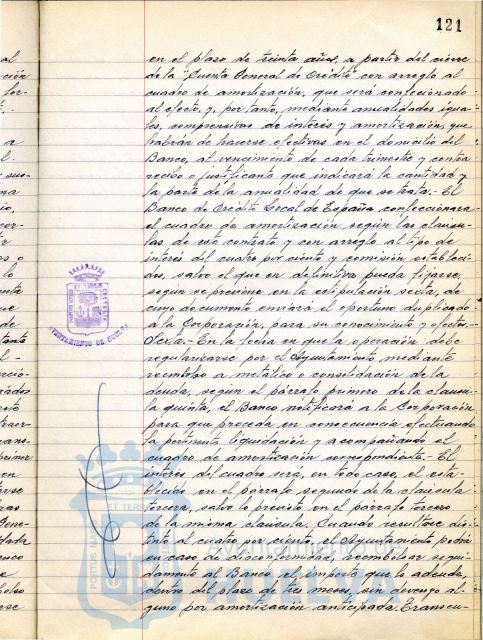 121
en el plazo de treinta años, a partir del cierre
de la "Cuenta General de Crédito" con arreglo al
cuadro de amortización, que será confeccionado
al efecto, y, por tanto, mediante anualidades igua-
les, comprensivas de interés y amortización, que
habrán de hacerse efectivas en el domicilio del
Banco, al vencimiento de cada trimestre y contra
recibo o justificante que indicará la cantidad y
la parte de la anualidad de que se trata.- El
Banco de Crédito Local de España confeccionará
el cuadro de amortización según las cláusu-
las de este contrato y con arreglo al tipo de
interés del cuatro por ciento y comisión estableci-
dos, salvo el que en definitiva pueda fijarse,
según se previene en la estipulación sexta, de
cuyo documento enviará el oportuno duplicado
a la Corporación, para su conocimiento y efectos.-
Sexta.- En la fecha en que la operación debe
regularizarse por el Ayuntamiento mediante
reembolso a metálico o consolidación de la
deuda, según el párrafo primero de la cláusu-
la quinta, el Banco notificará a la Corporación
para que proceda en consecuencia, efectuando
la pertinente liquidación y acompañando el
cuadro de amortización correspondiente.- El
interés del cuadro será, en todo caso, el esta-
blecido en el párrafo segundo de la cláusula
tercera, salvo lo previsto en el párrafo tercero
de la misma cláusula. Cuando resultase dis-
tinto al cuatro por ciento, el Ayuntamiento podrá
en caso de disconformidad, reembolsar segui-
damente al Banco el importe que le adeude,
dentro del plazo de tres meses, sin devengo al-
guno por amortización anticipada. Transcu-
AYUNTAMIENTO DE HUELVA